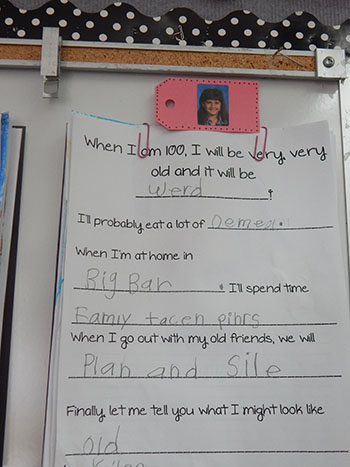 When I am 100, I will be very, very
old and it will be
Werd !
I'll probably eat a lot of
When I'm at home in
Big Bar . I'll spend time
Famiy tacen pihrs
When I go out with my old friends, we will
Plah and Sile
Finally, let me tell you what I might look like
old